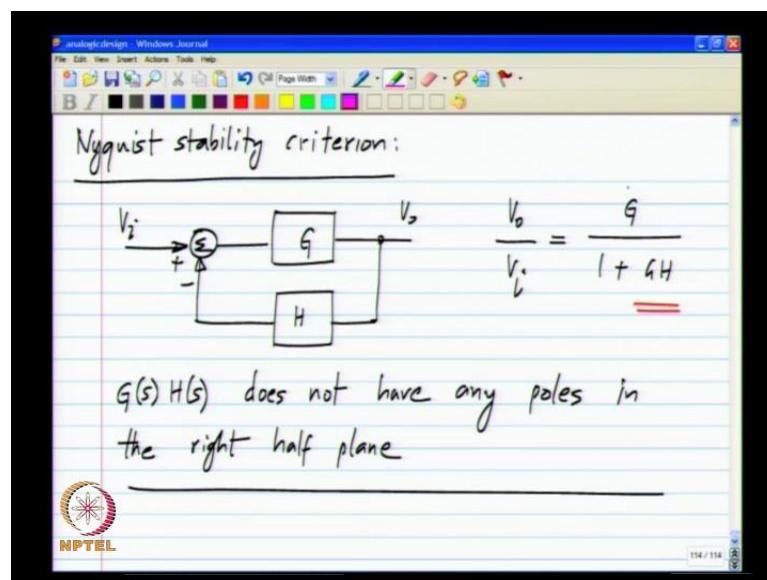 analogicdesign - Windows Journal
File Edit View Insert Actions Tools Help
Page Width
B I
Nyquist stability criterion:
Vi
+
-
Σ
G
H
Vo
Vo / Vi = G / 1 + GH
G(s) H(s) does not have any poles in
the right half plane
NPTEL
114 / 114